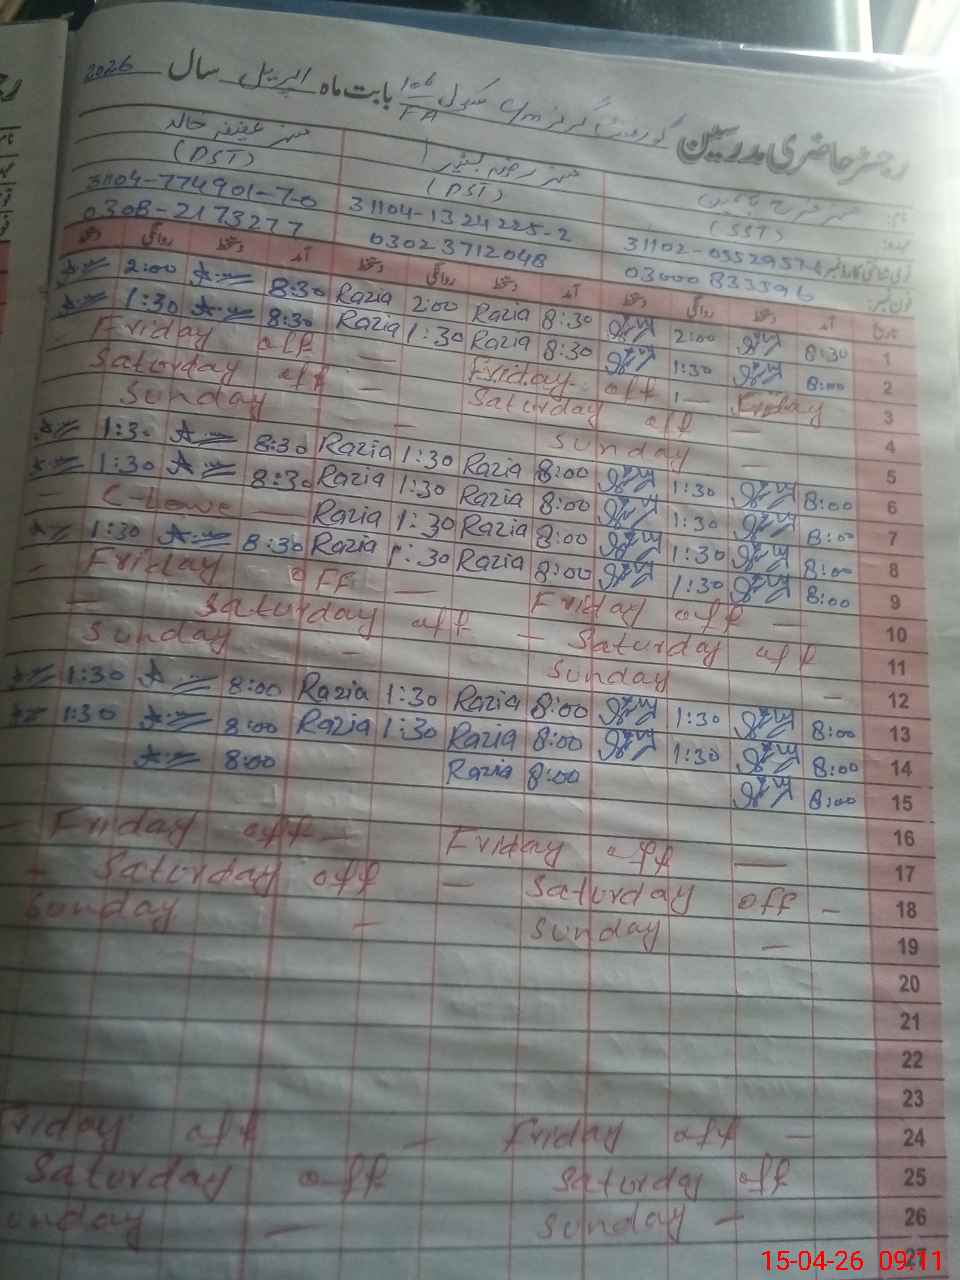 رجسٹر حاضری مدرسین گورنمنٹ گرلز سکول 106 بابت ماہ اپریل سال 2026
(SST) (PST) (PST)
31104-1324225-2 31104-774901-7-0
03000833596 03023712048 0308-2173277
تاریخ آمد دستخط روانگی دستخط آمد دستخط روانگی دستخط آمد دستخط روانگی دستخط
1 8:30 2:00 8:30 Razia 2:00 Razia 8:30 2:00
2 8:00 1:30 8:30 Razia 1:30 Razia 8:30 1:30
3 Friday off — Friday Friday off —
4 Saturday off — Saturday off —
5 Sunday — Sunday —
6 8:00 1:30 8:00 Razia 1:30 Razia 8:30 1:30
7 8:00 1:30 8:00 Razia 1:30 Razia 8:30 1:30
8 8:00 1:30 8:00 Razia 1:30 Razia —
9 8:00 1:30 8:00 Razia 1:30 Razia 8:30 1:30
10 Friday off — Friday off —
11 Saturday off — Saturday off —
12 Sunday — Sunday —
13 8:00 1:30 8:00 Razia 1:30 Razia 8:00 1:30
14 8:00 1:30 8:00 Razia 1:30 Razia 8:00 1:30
15 8:00 8:00 Razia 8:00
16
17 Friday off — Friday off —
18 Saturday off — Saturday off —
19 Sunday — Sunday —
20
21
22
23
24 Friday off — Friday off —
25 Saturday off Saturday off
26 Sunday — Sunday —
27
15-04-26 09:11